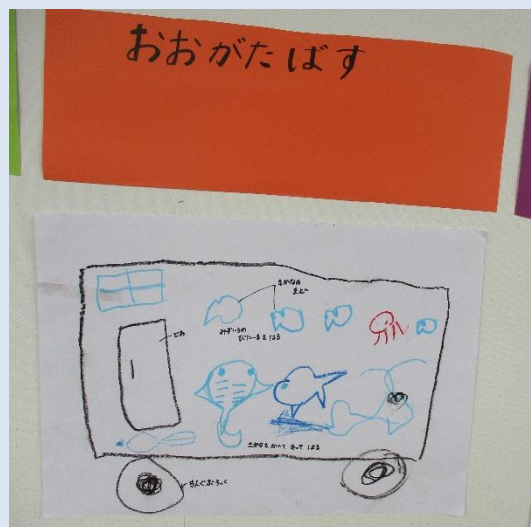 おおがたばす
さかなの
まど
みずいろの
びにーるをはる
どあ
さかなをかいて きって はる
りんぐぶろっく